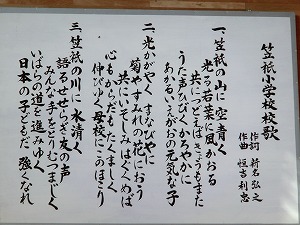 笠祇小学校校歌
作詞 新名弘之
作曲 恒吉利忠
一、笠祇の山に 空青く
光る若葉に 風かおる
共にそろえば きょうもまた
うた声ひびく かろやかに
あかるいえがおの 元気な子
二、光かがやく まなびやに
菊やすみれの 花におう
共にいそしみ はぐくめば
心もからだも たくましく
伸びゆく母校に このほこり
三、笠祇の川に 水清く
語るせせらぎ 友の声
みんな手をとり むつまじく
いばらの道を 進みゆく
日本の子どもだ 強くなれ